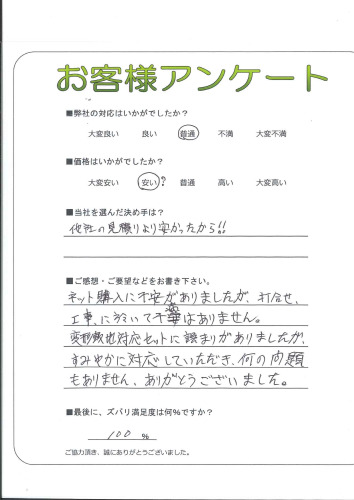 お客様アンケート
■弊社の対応はいかがでしたか?
大変良い 良い 普通 不満 大変不満
■価格はいかがでしたか?
大変安い 安い? 普通 高い 大変高い
■当社を選んだ決め手は?
他社の見積りより安かったから!!
■ご感想・ご要望などをお書き下さい。
ネット購入に不安がありましたが、打合せ、
工事、に於いて不満はありません。
対応セットに誤まりがありましたが、
すみやかに対応していただき、何の問題
もありません、ありがとうございました。
■最後に、ズバリ満足度は何%ですか?
100 %
ご協力頂き、誠にありがとうございました。